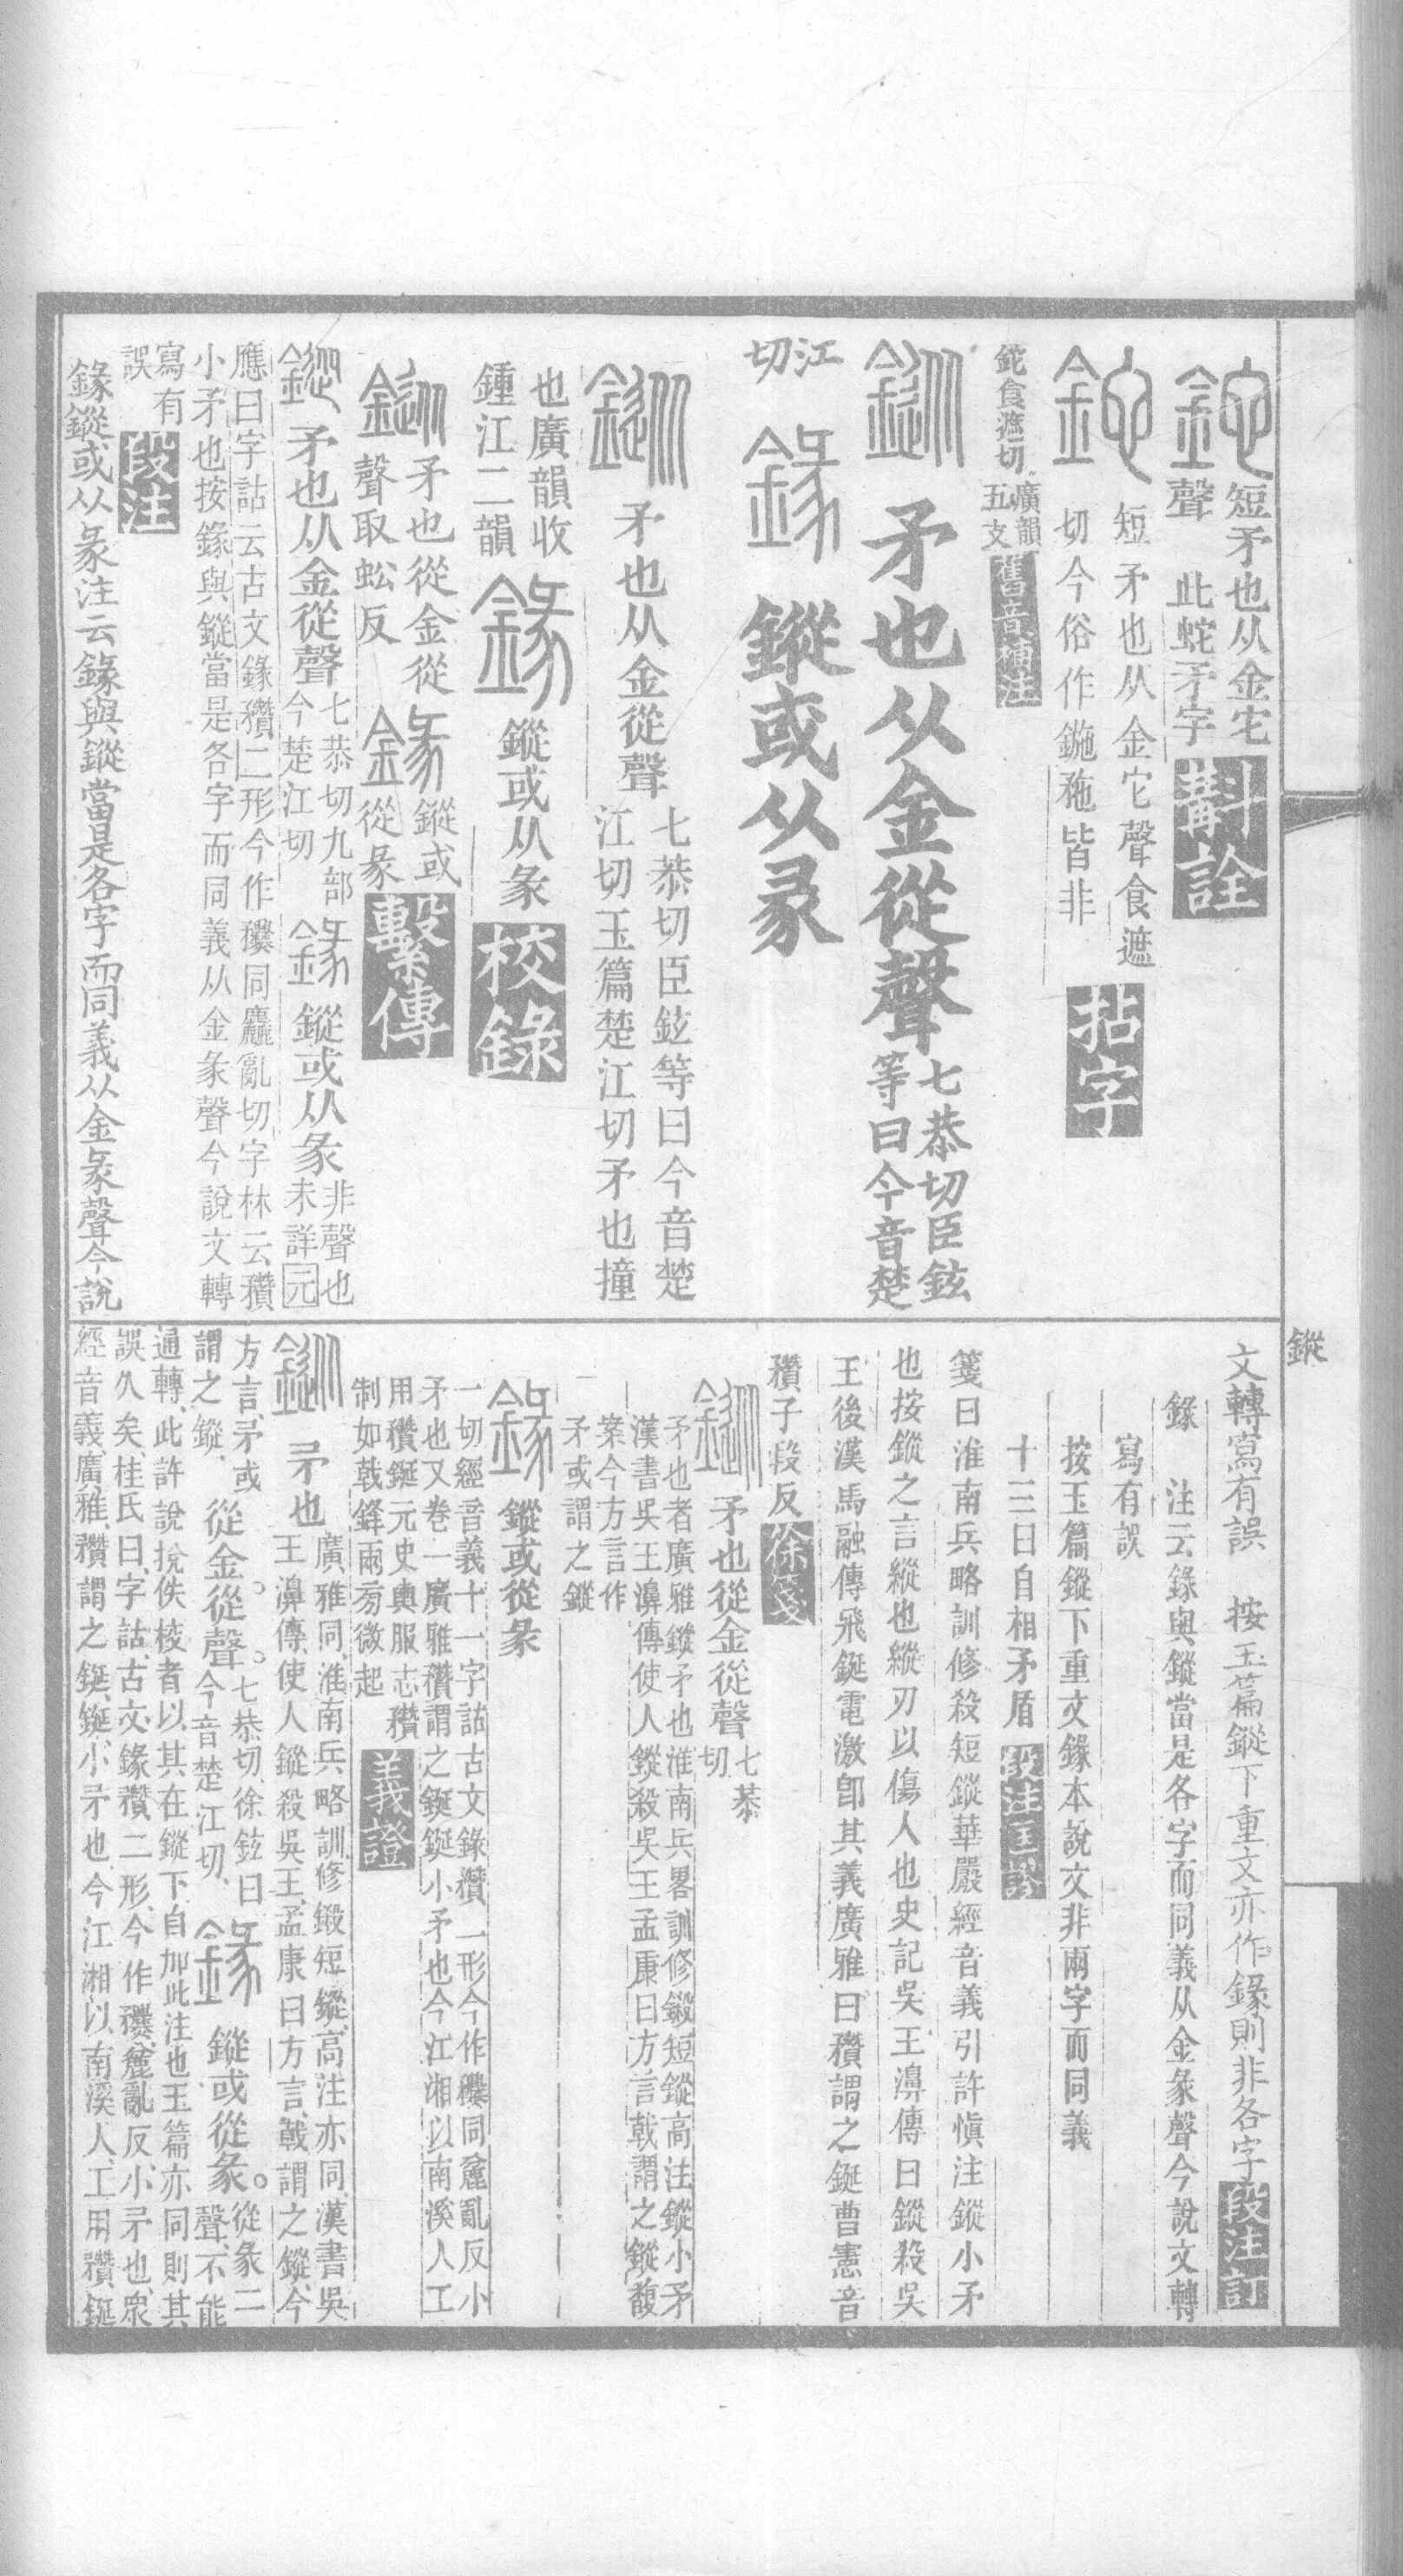 鉈
短矛也从金它
聲
此蛇矛字
斠詮
鉈
短矛也从金它聲食遮
切今俗作鍦䂠皆非
拈字
鉈食遮切廣韻
五支
舊音補注
鏦
矛也从金從聲七恭切臣鉉
等曰今音楚
江
切
錄
鏦或从彖
鏦
矛也从金從聲
七恭切臣鉉等曰今音楚
江切玉篇楚江切矛也撞
也廣韻收
鍾江二韻
鏦或从彖
校錄
鏦
矛也從金從
聲取蚣反
鏦或
從彖
繫傳
鏦
矛也从金從聲
七恭切九部
今楚江切
鏦或从彖
非聲也
未詳元
應曰字詁云古文錄穳二形今作𥎝同麤亂切字林云穳
小矛也按錄與鏦當是各字而同義从金彖聲今說文轉
寫有
誤
段注
錄鏦或从彖注云錄與鏦當是各字而同義从金彖聲今說
文轉寫有誤 按玉篇鏦下重文亦作錄則非各字
段注訂
錄 注云錄與鏦當是各字而同義从金彖聲今說文轉
寫有誤
按玉篇鏦下重文錄本說文非兩字而同義
十三曰自相矛盾
段注匡謬
箋曰淮南兵略訓修殺短鏦華嚴經音義引許愼注鏦小矛
也按鏦之言縱也縱刃以傷人也史記吳王濞傳曰鏦殺吳
王後漢馬融傳飛鋋電激卽其義廣雅曰穳謂之鋋曹憲音
穳子段反
徐箋
鏦
矛也從金從聲
七恭
切
矛也者廣雅鏦矛也淮南兵畧訓修鎩短鏦高注鏦小矛
漢書吳王濞傳使人鏦殺吳王孟康曰方言戟謂之鏦馥
案今方言作
矛或謂之鏦
鏦或從彖
一切經音義十一字詁古文錄穳二形今作𥎝同麤亂反小
矛也又卷一廣雅穳謂之鋋鋋小矛也今江湘以南溪人工
用穳鋋元史輿服志穳
制如戟鋒兩旁微起
義證
鏦
矛也
廣雅同、淮南兵略訓修鎩短鏦、高注亦同、漢書吳
王濞傳、使人鏦殺吳王、孟康曰方言、戟謂之鏦、今
方言、矛或
謂之鏦、
從金從聲。
七恭切、徐鉉曰、
今音楚江切、
鏦或從彖。
從彖二
聲、不能
通轉、此許說捝佚、校者以其在鏦下、自加此注也、玉篇亦同、則其
誤久矣、桂氏曰、字詁、古文、錄穳、二形、今作𥎝、麤亂反、小矛也、眾
經音義、廣雅、穳謂之鋋、鋋、小矛也、今江湘以南溪人、工用穳鋋
鏦